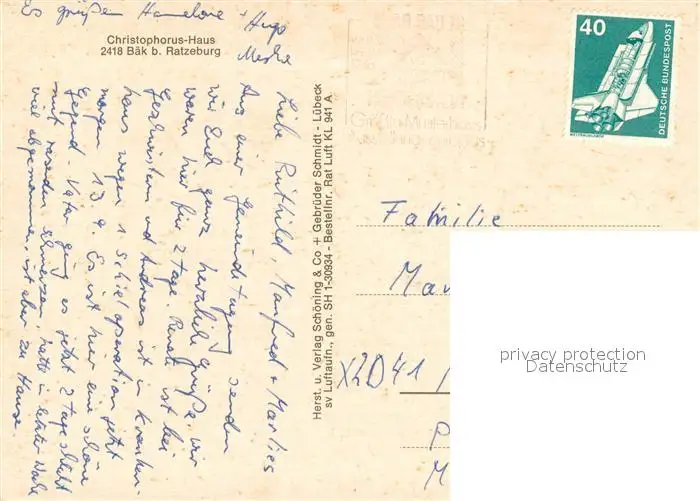 Es grüßen Hannelore + Hugo
Christophorus-Haus
2418 Bäk b. Ratzeburg
Liebe Ruthild, Manfred + Marlies
Aus einer Gemeindetagung senden
wir Euch ganz herzliche Grüße. Wir
waren hier für 2 Tage. Renate ist bei
Geschwistern und Andreas ist in Kranken-
haus wegen 1 Schieloperation jetzt
morgen 13.9. Es ist hier eine schöne
Gegend. Vater ging es jetzt 2 Tage schlecht
mit Schmerzen, hatte in letzter Woche
viel abgenommen, ist aber zu Hause
Herst. u. Verlag Schöning & Co + Gebrüder Schmidt - Lübeck
sv Luftaufn., gen. SH 1-30934 - Bestellnr. Rat Luft KL 941 A
40
DEUTSCHE BUNDESPOST
WELTRAUMLABOR
Familie
X2D41 /
privacy protection
Datenschutz